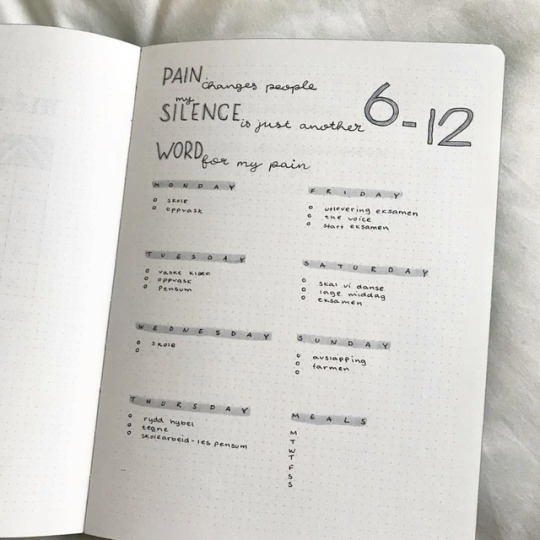 PAIN changes people
my
SILENCE is just another
WORD for my pain
6-12
MONDAY
skole
oppvask
TUESDAY
vaske klær
oppvask
pensum
WEDNESDAY
skole
THURSDAY
rydd hybel
tegne
skolearbeid - les pensum
FRIDAY
utlevering eksamen
the voice
start eksamen
SATURDAY
skal vi danse
lage middag
eksamen
SUNDAY
avslapping
farmen
MEALS
M
T
W
T
F
S
S